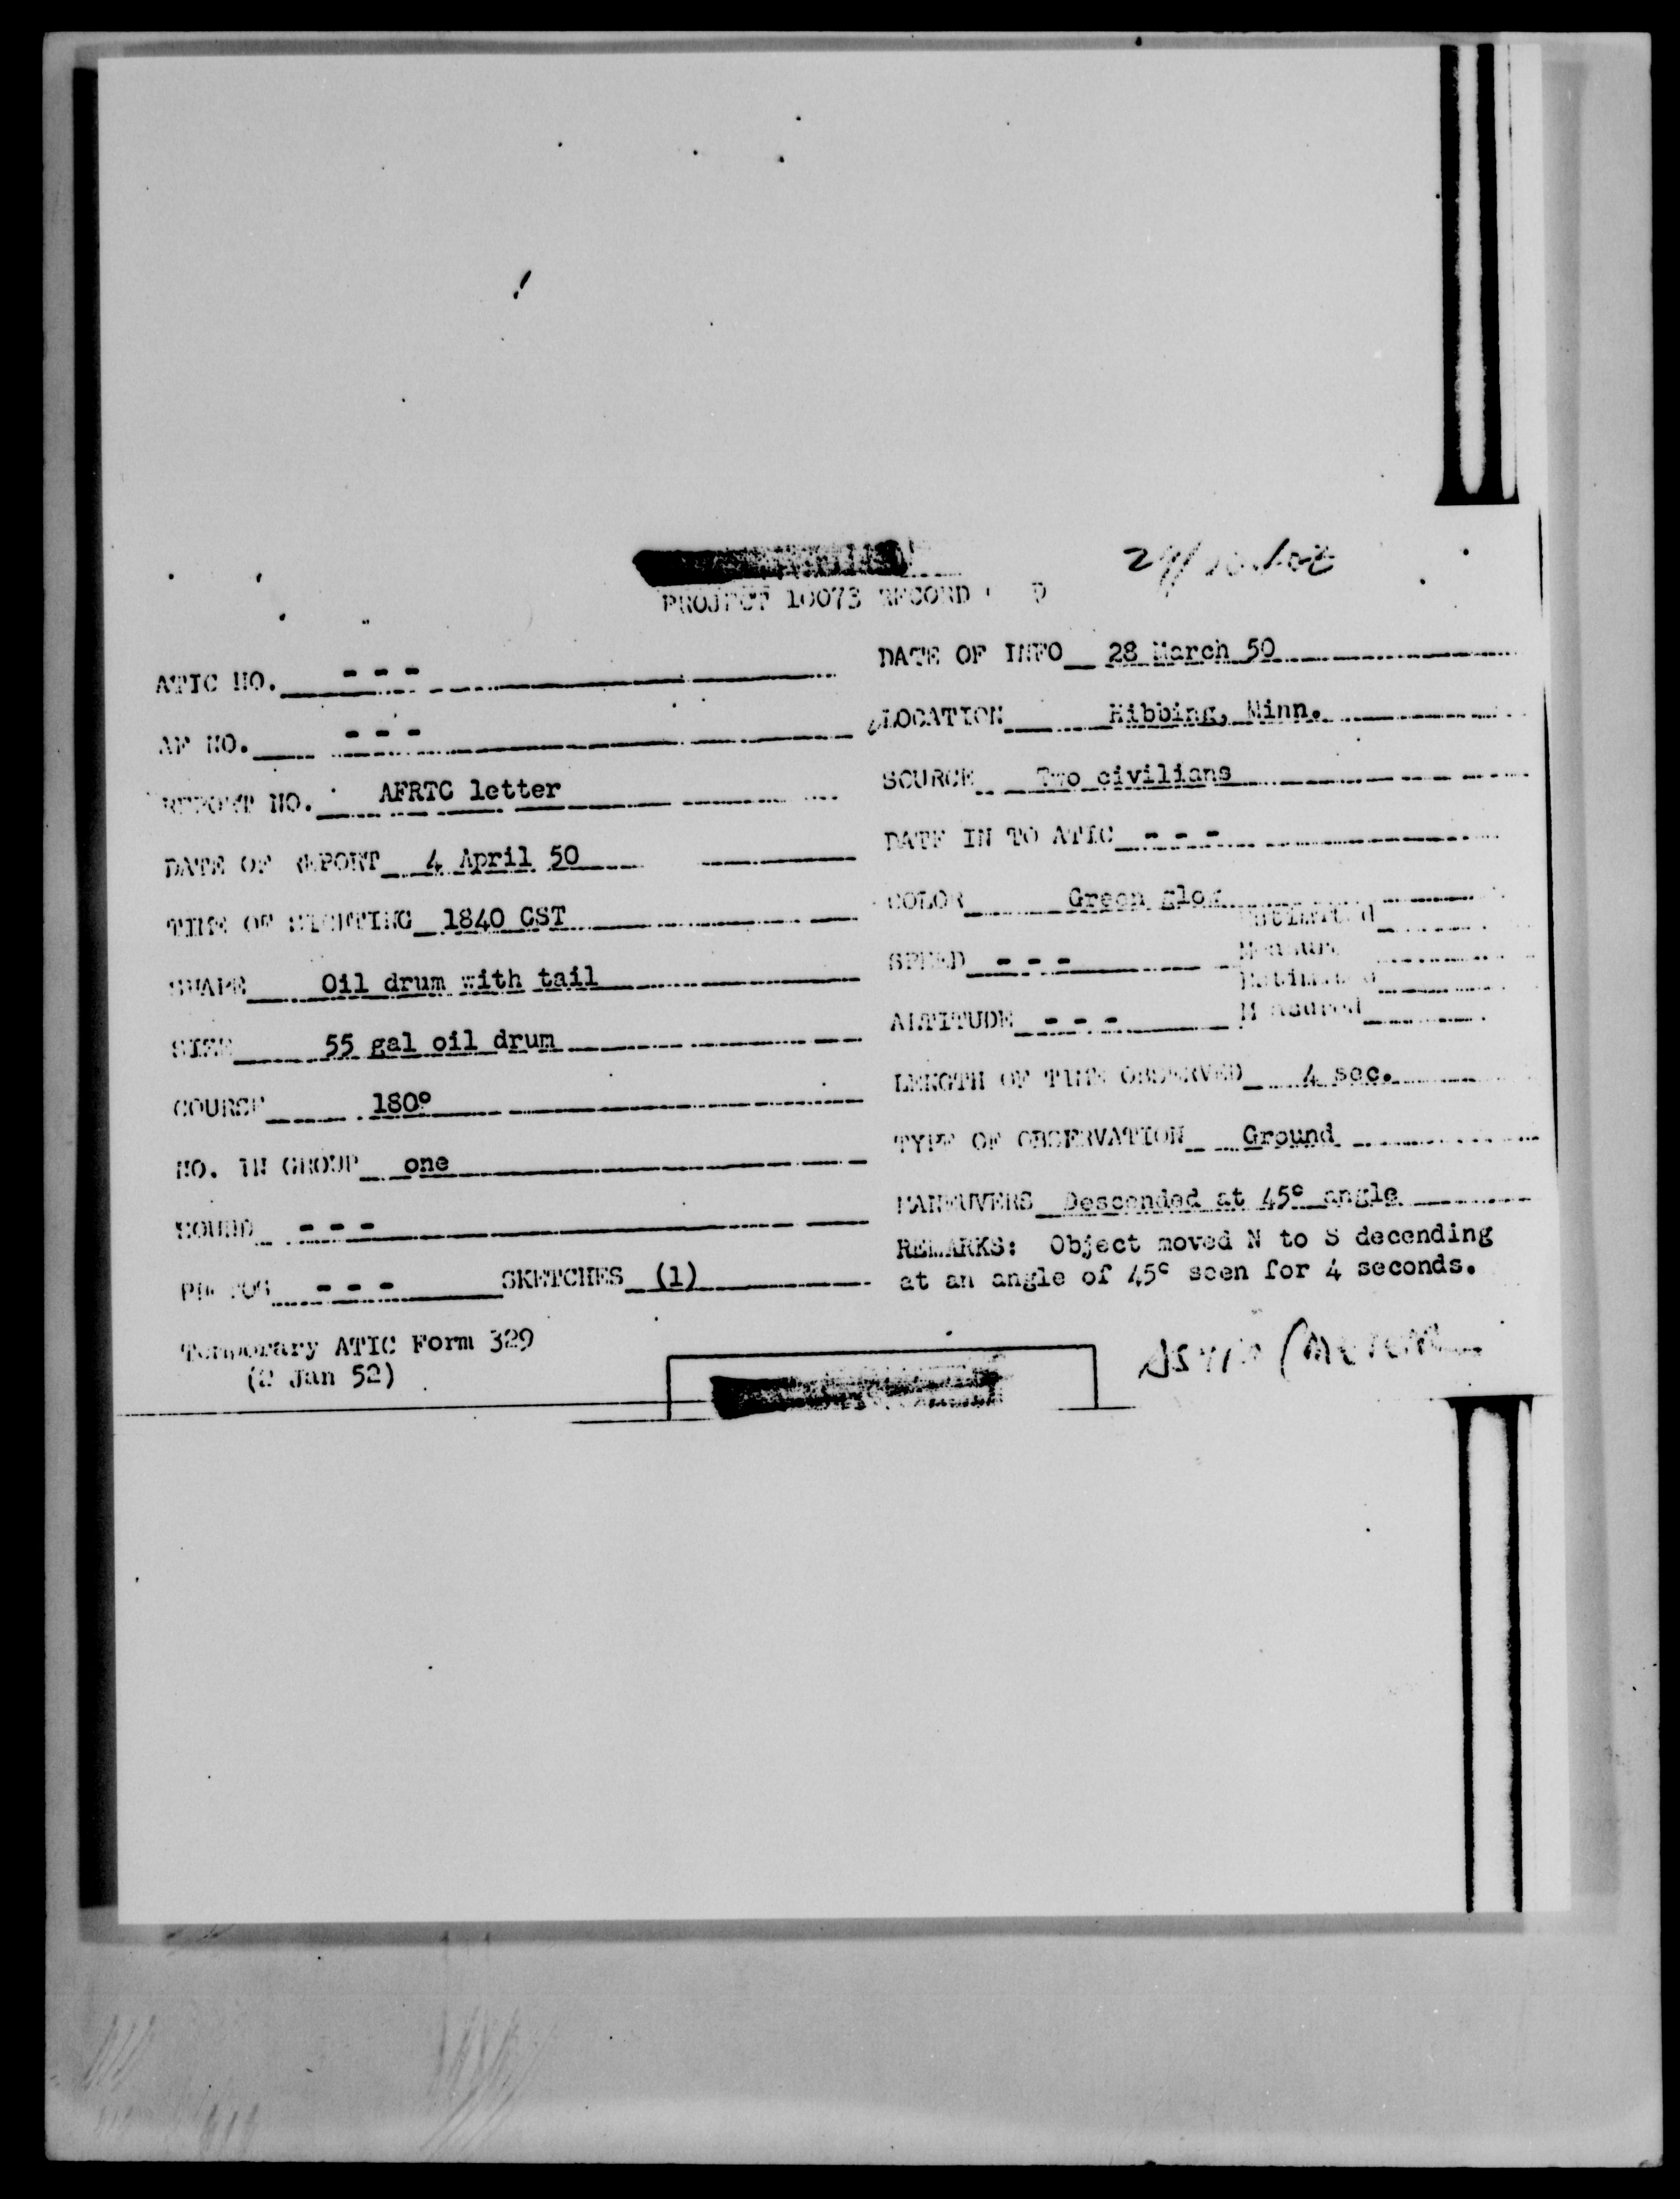 PROJECT 10073 RECORD
ATIC NO. - - -
AF NO. - - -
REPORT NO. AFRTC letter
DATE OF REPORT 4 April 50
TIME OF SIGHTING 1840 CST
SHAPE Oil drum with tail
SIZE 55 gal oil drum
COURSE 180°
NO. IN GROUP one
SOUND - - -
PHOTOS - - - SKETCHES (1)
Temporary ATIC Form 329
(2 Jan 52)
DATE OF INFO 28 March 50
LOCATION Hibbing, Minn.
SOURCE Two civilians
DATE IN TO ATIC - - -
COLOR Green glow
SPEED - - - Estimated
Measured
ALTITUDE - - - Estimated
Measured
LENGTH OF TIME OBSERVED 4 sec.
TYPE OF OBSERVATION Ground
MANEUVERS Descended at 45° angle
REMARKS: Object moved N to S decending
at an angle of 45° seen for 4 seconds.